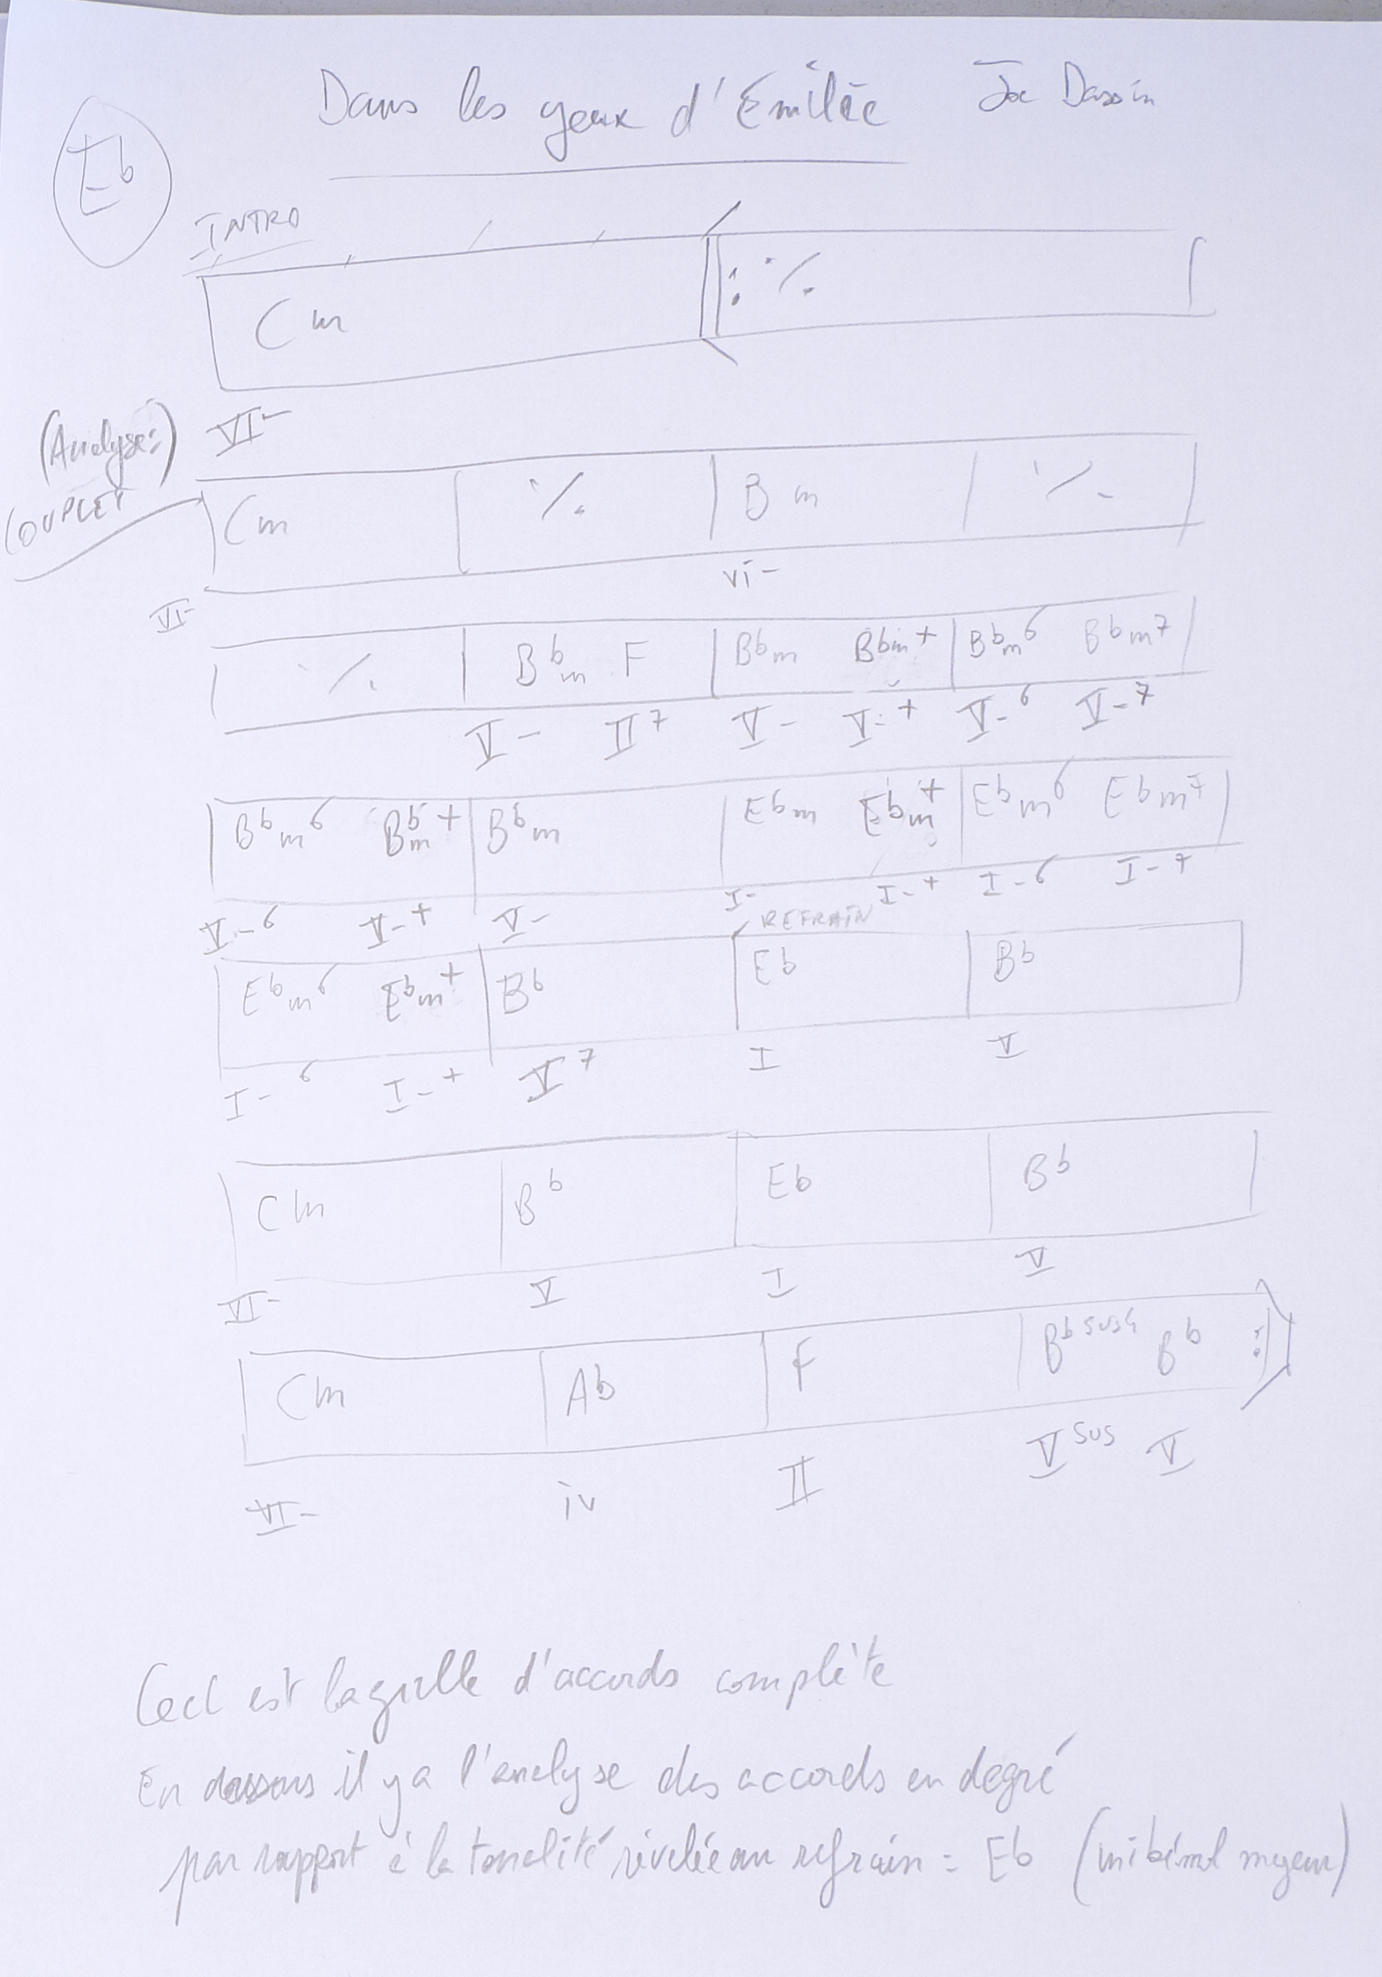 Dans les yeux d'Émilie Joe Dassin
Eb
INTRO
Cm 𝄎
(Analyse:) VI-
COUPLET
Cm 𝄎 Bm 𝄎
VI- vi-
𝄎 Bbm F Bbm Bbm+ Bbm6 Bbm7
V- II7 V- V-+ V-6 V-7
Bbm6 Bbm+ Bbm Ebm Ebm+ Ebm6 Ebm7
V-6 V-+ V- I- I-+ I-6 I-7
REFRAIN
Ebm6 Ebm+ Bb Eb Bb
I-6 I-+ V7 I V
Cm Bb Eb Bb
VI- V I V
Cm Ab F Bbsus4 Bb
VI- iv II Vsus V
Ceci est la grille d'accords complète
En dessous il y a l'analyse des accords en degré
par rapport à la tonalité révélée au refrain = Eb (mi bémol majeur)